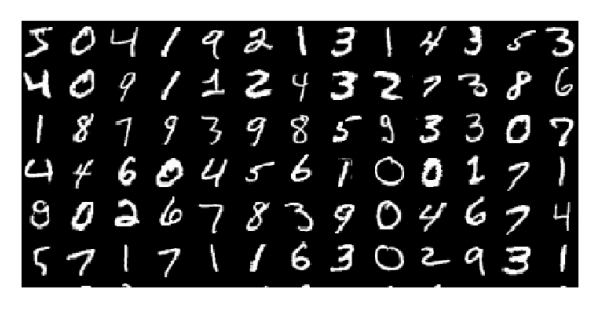 5 0 4 1 9 2 1 3 1 4 3 5 3
4 0 9 1 1 2 4 3 2 7 3 8 6
1 8 7 9 3 9 8 5 9 3 3 0 7
4 4 6 0 4 5 6 1 0 0 1 7 1
9 0 2 6 7 8 3 9 0 4 6 7 4
5 7 1 7 1 1 6 3 0 2 9 3 1